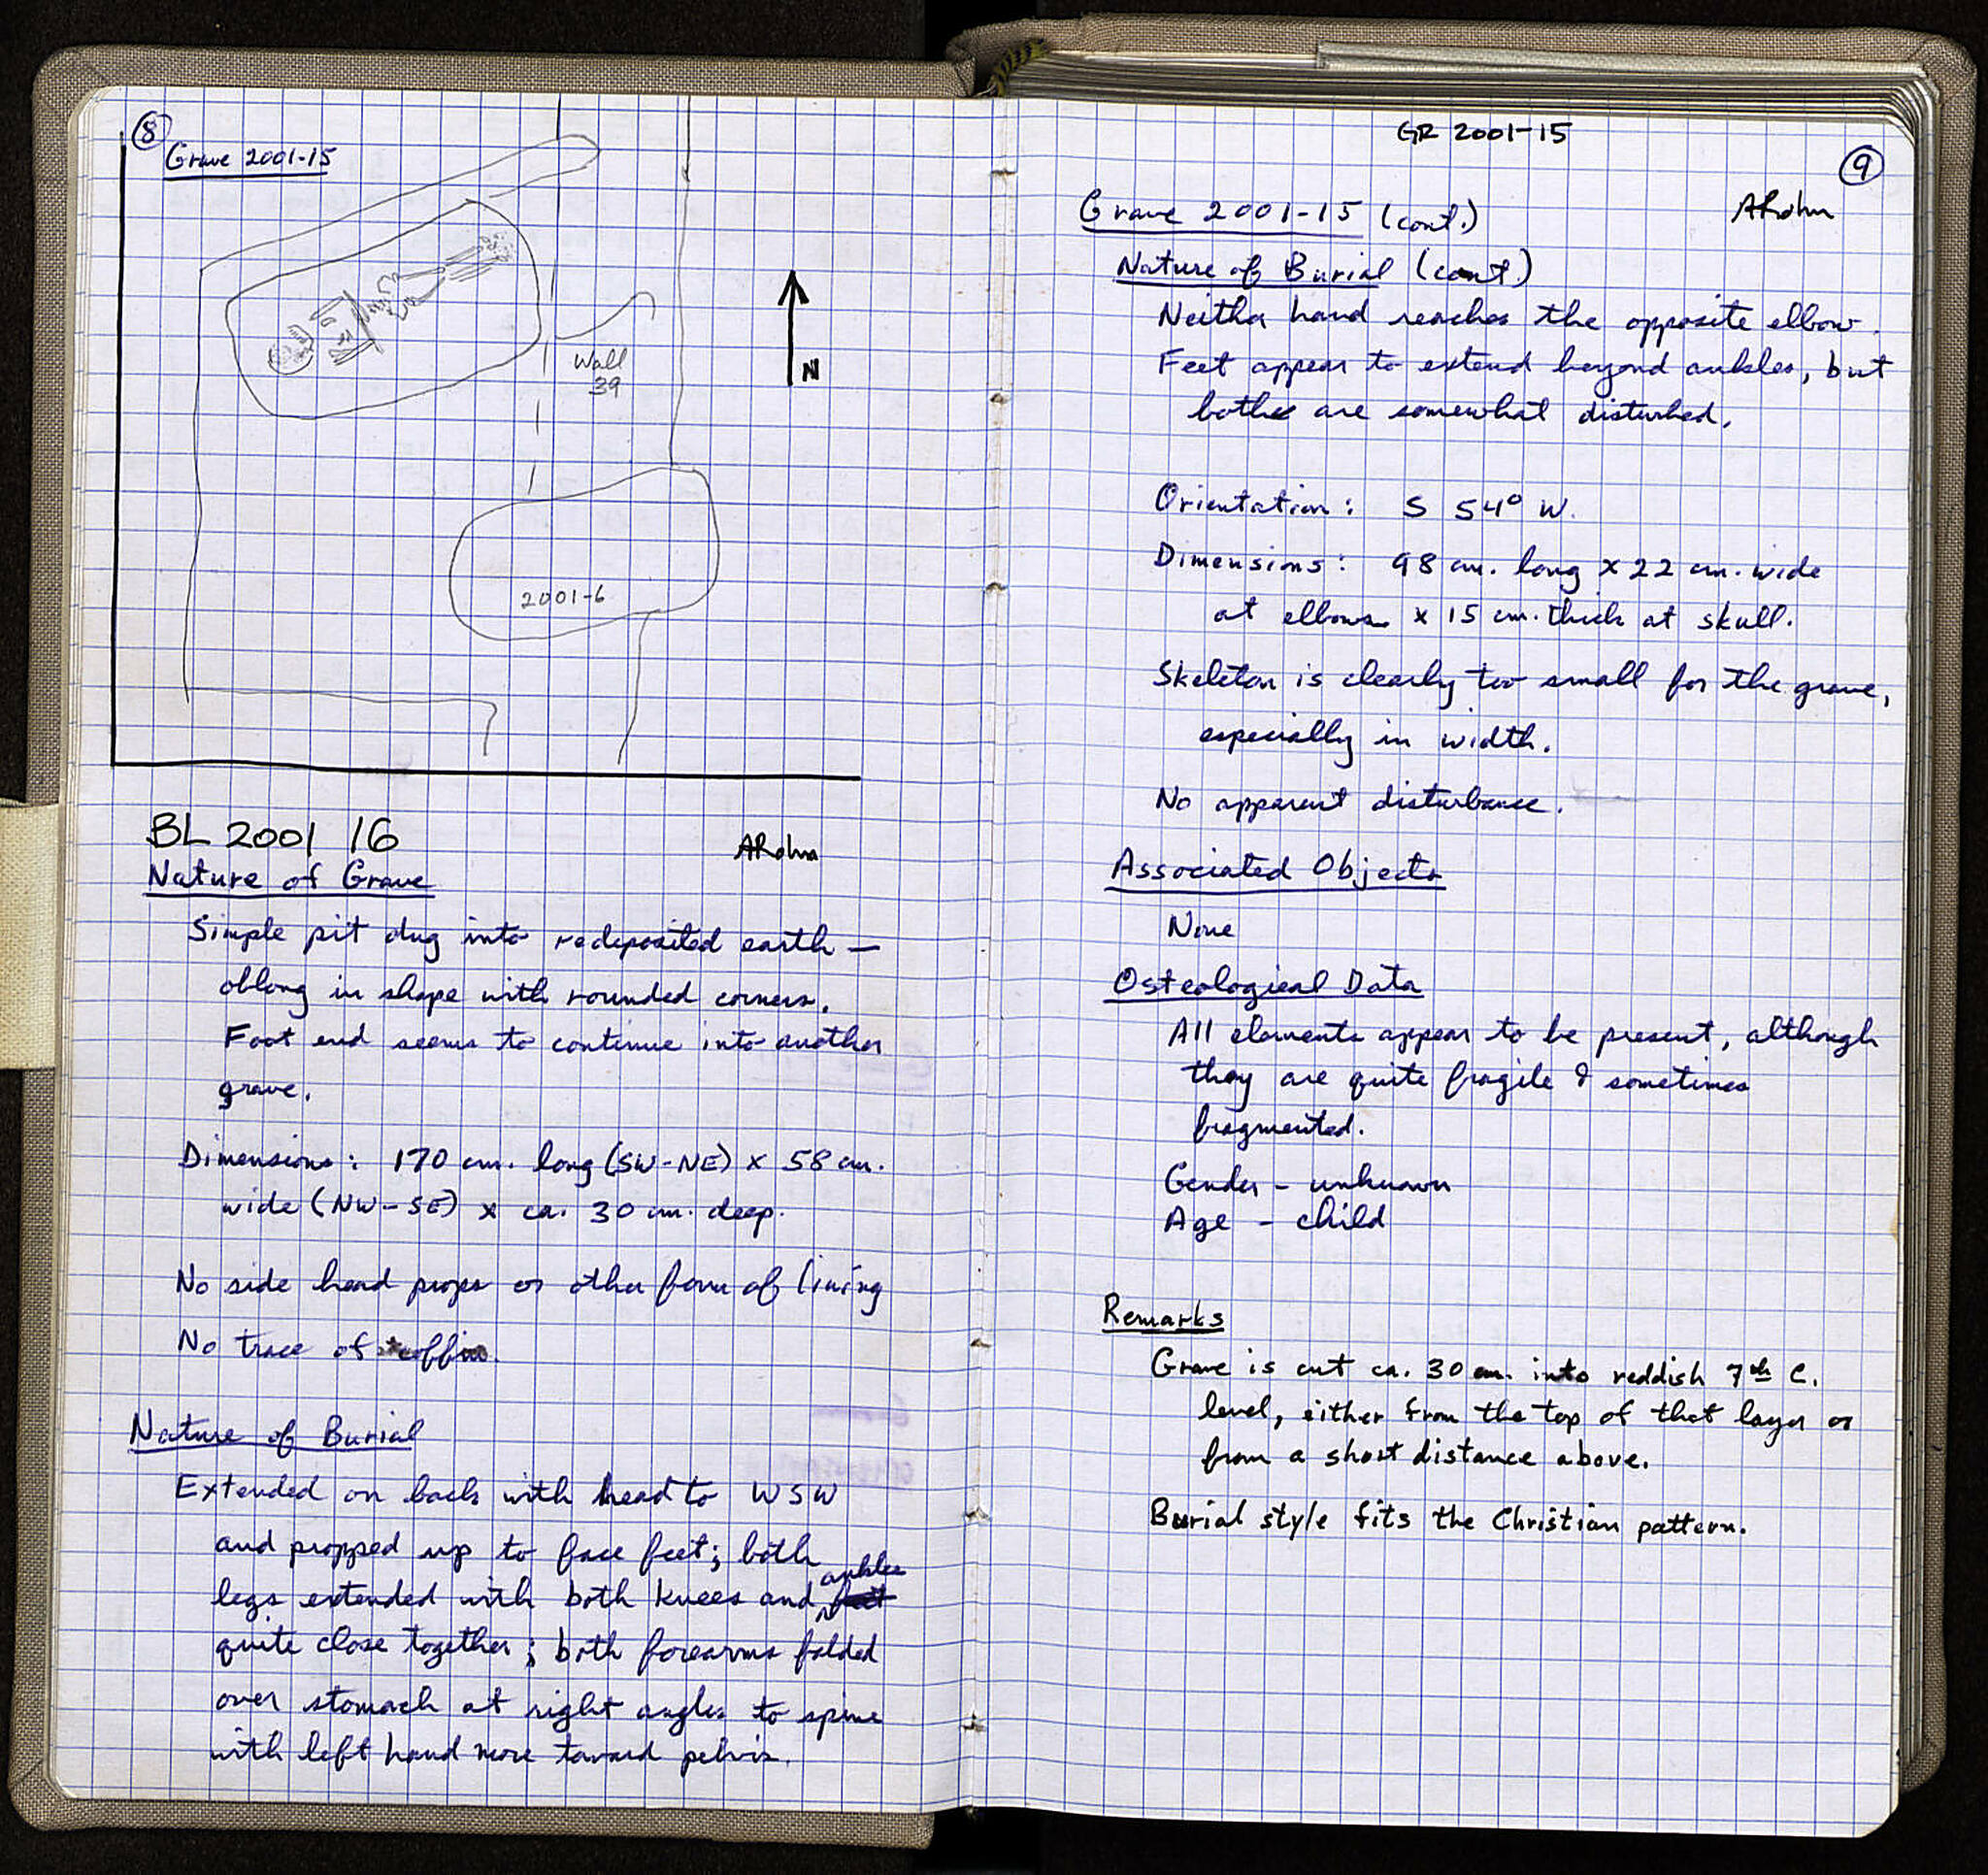 8
Grave 2001-15
Wall
39
N
2001-6
BL 2001 16
ARohn
Nature of Grave
Simple pit dug into redeposited earth —
oblong in shape with rounded corners.
Foot end seems to continue into another
grave.
Dimensions: 170 cm. long (SW-NE) x 58 cm.
wide (NW-SE) x ca. 30 cm. deep.
No side head props or other form of lining
No trace of coffin.
Nature of Burial
Extended on back with head to WSW
and propped up to face feet; both
legs extended with both knees and ankles feet
quite close together; both forearms folded
over stomach at right angles to spine
with left hand more toward pelvis.
GR 2001-15
9
Grave 2001-15 (cont.)
ARohn
Nature of Burial (cont.)
Neither hand reaches the opposite elbow.
Feet appear to extend beyond ankles, but
both are somewhat disturbed.
Orientation: S 54° W.
Dimensions: 98 cm. long x 22 cm. wide
at elbows x 15 cm. thick at skull.
Skeleton is clearly too small for the grave,
especially in width.
No apparent disturbance.
Associated Objects
None
Osteological Data
All elements appear to be present, although
they are quite fragile & sometimes
fragmented.
Gender - unknown
Age - child
Remarks
Grave is cut ca. 30 cm. into reddish 7th C.
level, either from the top of that layer or
from a short distance above.
Burial style fits the Christian pattern.